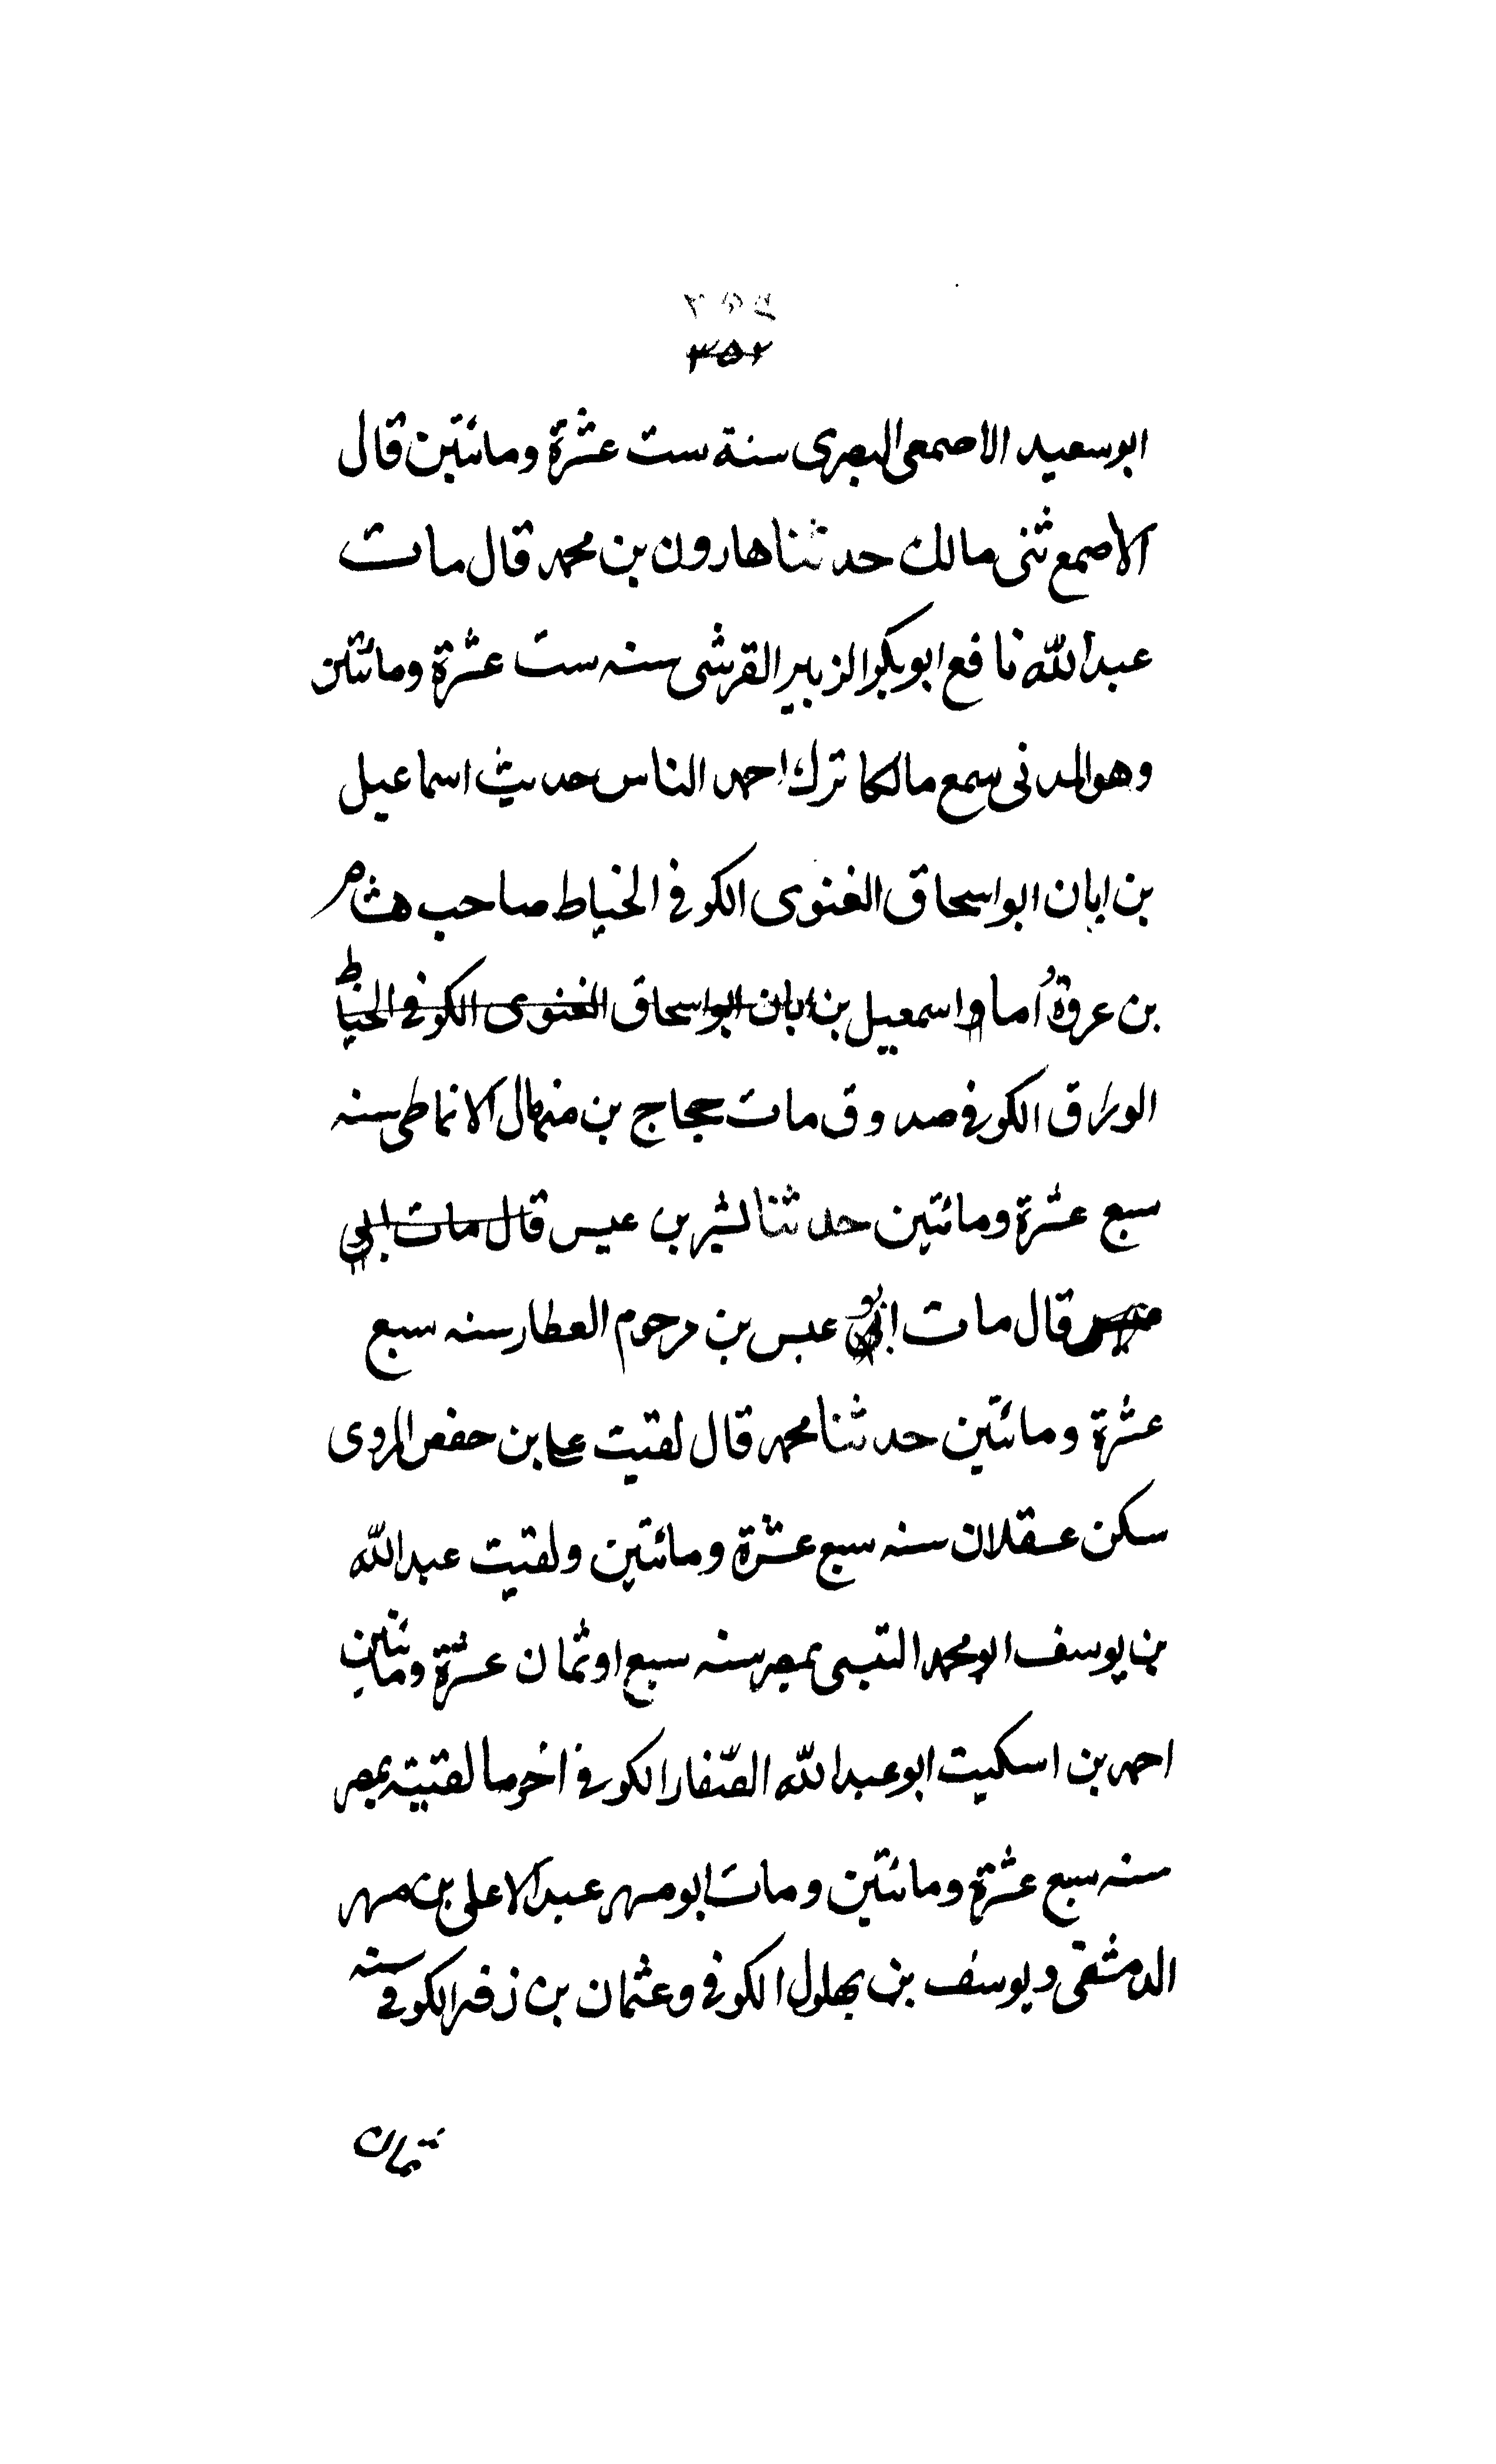 ٣٥٢
ابو سعيد الاصمعى البصرى سنة ست عشرة ومائتين قال
الاصمع ثنى مالك حدثنا هارون بن محمد قال مات
عبدالله نافع ابو بكر الزبير القرشى سنه ست عشرة ومائتين
وهو المدنى سمع مالكا ترك احمد الناس حديث اسماعيل
بن ابان ابو اسحاق الغنوى الكوفى الخياط صاحب هشام
بن عروة أما واسمعيل بن ابان ابو اسحاق الغنوى الكوفى الخياط
الوراق الكوفى صدوق مات حجاج بن منهال الانماطى سنه
سبع عشرة ومائتين حدثنا بشير بن عبس قال مات ابي
قال مات عبس بن مرحوم العطار سنه سبع
عشرة ومائتين حدثنا محمد قال لقيت على بن حفص المروى
سكن عسقلان سنه سبع عشرة ومائتين ولقيت عبدالله
بن يوسف ابو محمد التنيسى بمصر سنه سبع او ثمان عشرة ومائتين
احمد بن اسكيت ابو عبدالله الصّفار الكوفى اخر ما لقيته بمصر
سنه سبع عشرة ومائتين ومات ابو مسهر عبدالاعلى بن مسهر
الدمشقى ويوسف بن بهلول الكوفى وعثمان بن زفر الكوفى سنه
ثمان